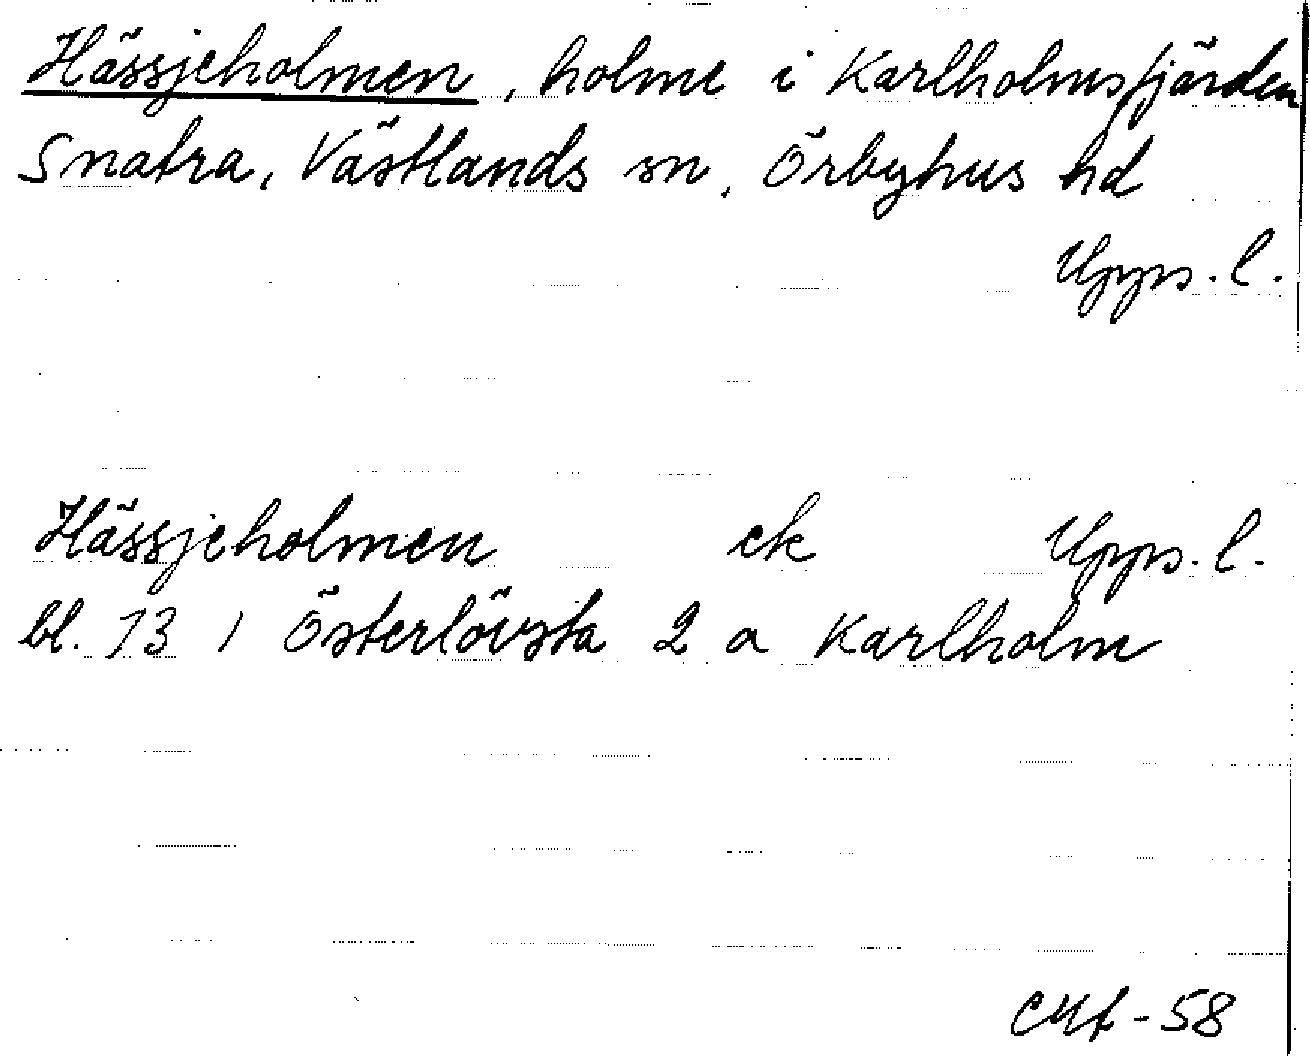 Hässjeholmen, holme i Karlholmsfjärden
Snatra, Västlands sn, Örbyhus hd
Upps. l.
Hässjeholmen ek Upps. l.
bl. 73 1 Österlövsta 2 a Karlholm
-58